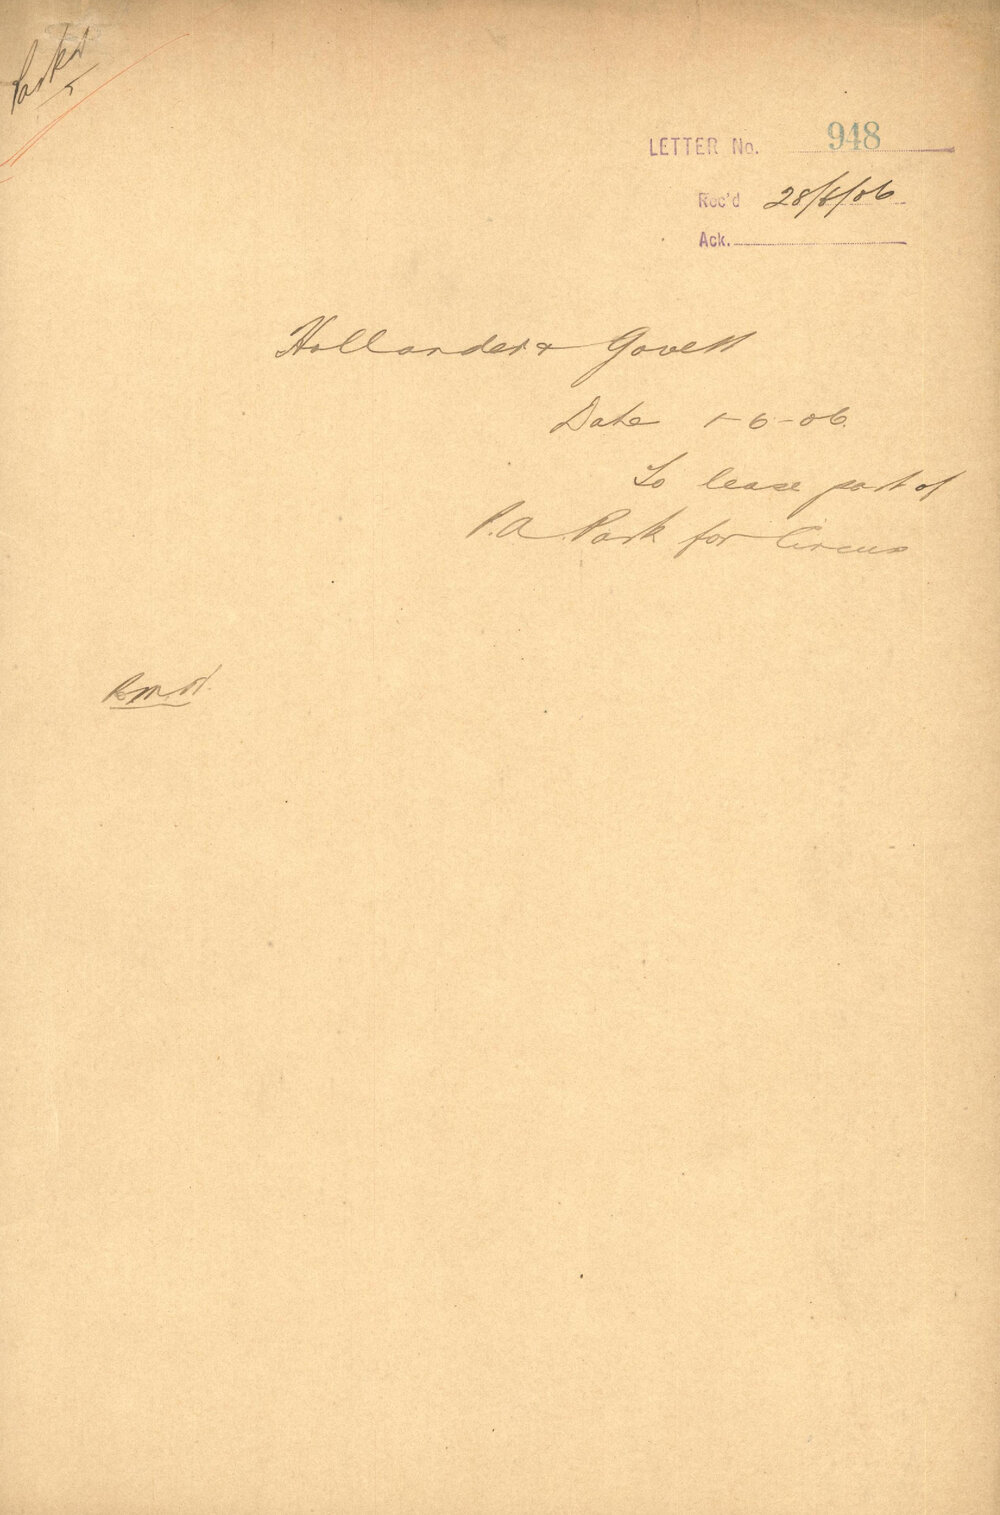 Parks
LETTER No. 948
Rec'd 28/8/06
Ack.
Hollander & Govett
Date 1-6-06.
To lease part of
P.A. Park for Circus